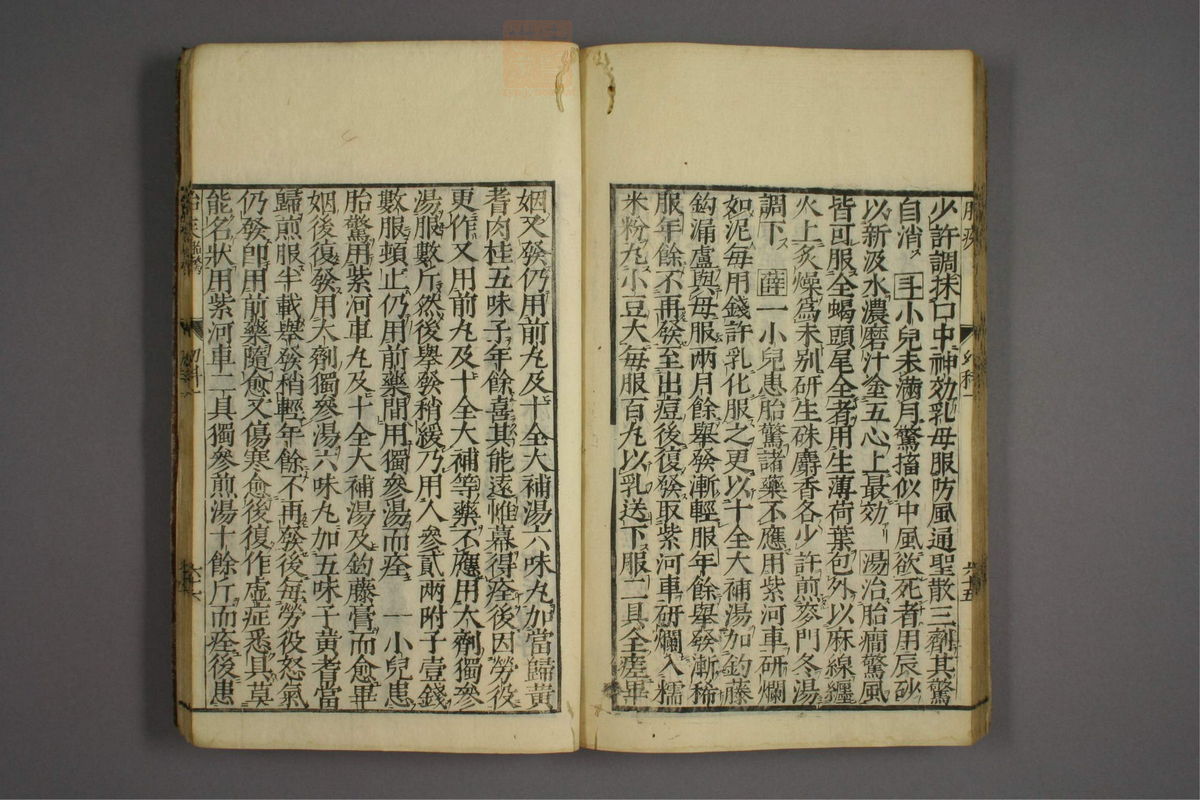 少許調抹口中神効乳母服防風通聖散三劑其驚
自消 王小兒未滿月驚搐似中風欲死者用辰砂
以新汲水濃磨汁塗五心上最効 湯治胎癇驚風
皆可服全蝎頭尾全者用生薄荷葉包外以麻線纏
火上炙燥為末別研生硃麝香各少許煎麥門冬湯
調下 薛一小兒患胎驚諸藥不應用紫河車研爛
如泥每用錢許乳化服之更以十全大補湯加釣藤
鈎漏盧與母服兩月餘舉發漸輕服年餘舉發漸稀
服年餘不再發至出痘後復發取紫河車研爛入糯
米粉丸小豆大每服百丸以乳送下服二具全瘥畢
姻又發仍用前丸及十全大補湯六味丸加當歸黃
耆肉桂五味子年餘喜其能遠惟幕得痊後因勞役
更作又用前丸及十全大補等藥不應用大劑獨參
湯服數斤然後舉發稍緩乃用人參貳兩附子壹錢
數服頓止仍用前藥間用獨參湯而痊 一小兒患
胎驚用紫河車丸及十全大補湯及釣藤膏而愈畢
姻後復發用大劑獨參湯六味丸加五味子黃耆當
歸煎服半載舉發稍輕年餘不再發後每勞役怒氣
仍發卽用前藥隨愈又傷寒愈後復作虛症悉具莫
能名狀用紫河車二具獨參煎湯十餘斤而痊後患